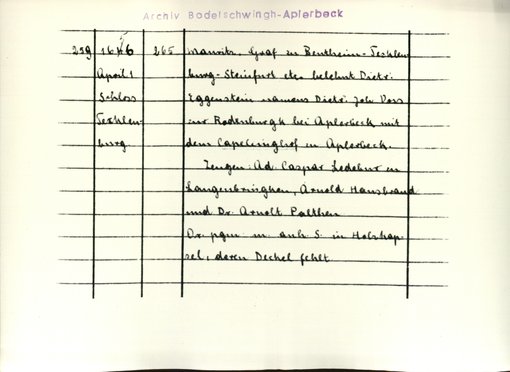 Archiv Bodelschwingh-Aplerbeck
259 1646 265 Mauritz, Graf zu Bentheim-Tecklen-
April 1 burg-Steinfurt etc. belehnt Dietr.
Schloss Eggenstein namens Dietr. Joh. Voss
Tecklen- zur Rodenburgk bei Aplerbeck mit
burg. dem Capelinghof in Aplerbeck.
Zeugen: Ad. Caspar Ledebur in
Langenbringhen, Arnold Hausbrand
und Dr. Arnolt Palthen
Or. pgm. m. anh. S. in Holzkap-
sel, deren Deckel fehlt.